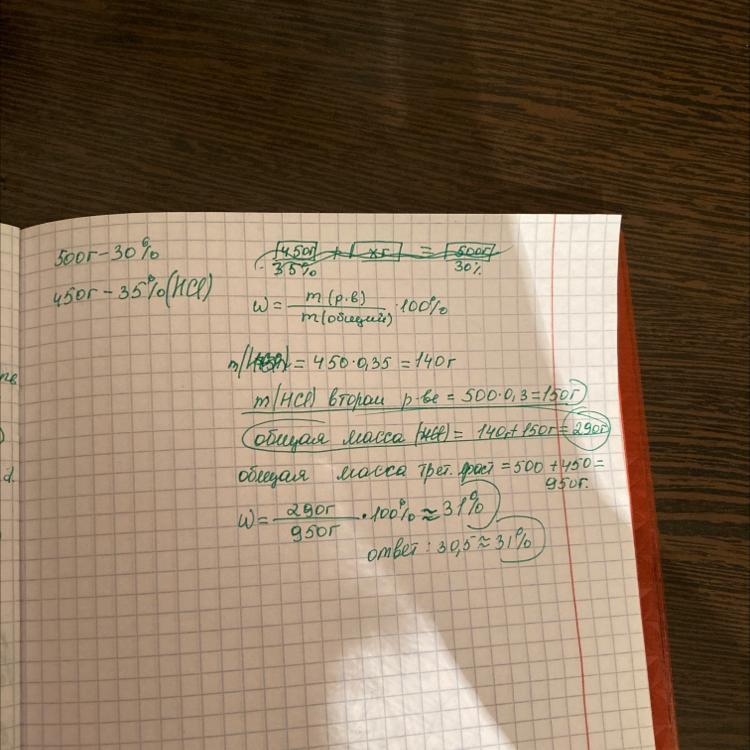 500г-30%
450г-35%(HCl)
450г + xг = 500г
35% 30%
ω = m(р.в) / m(общий) ·100%
= 450·0,35 = 140г
m(HCl) втором р-ве = 500·0,3=150г
общая масса (HCl) = 140г+150г=290г
общая масса трет. = 500+450=
950г.
ω = 290г / 950г ·100% ≈ 31%
ответ: 30,5≈31%